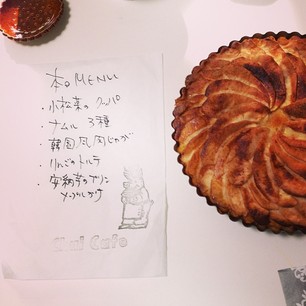 本日MENU
・小松菜のクッパ
・ナムル 3種
・韓国風肉じゃが
・りんごのトルテ
・安納芋のプリン
メープルがけ
Cafe